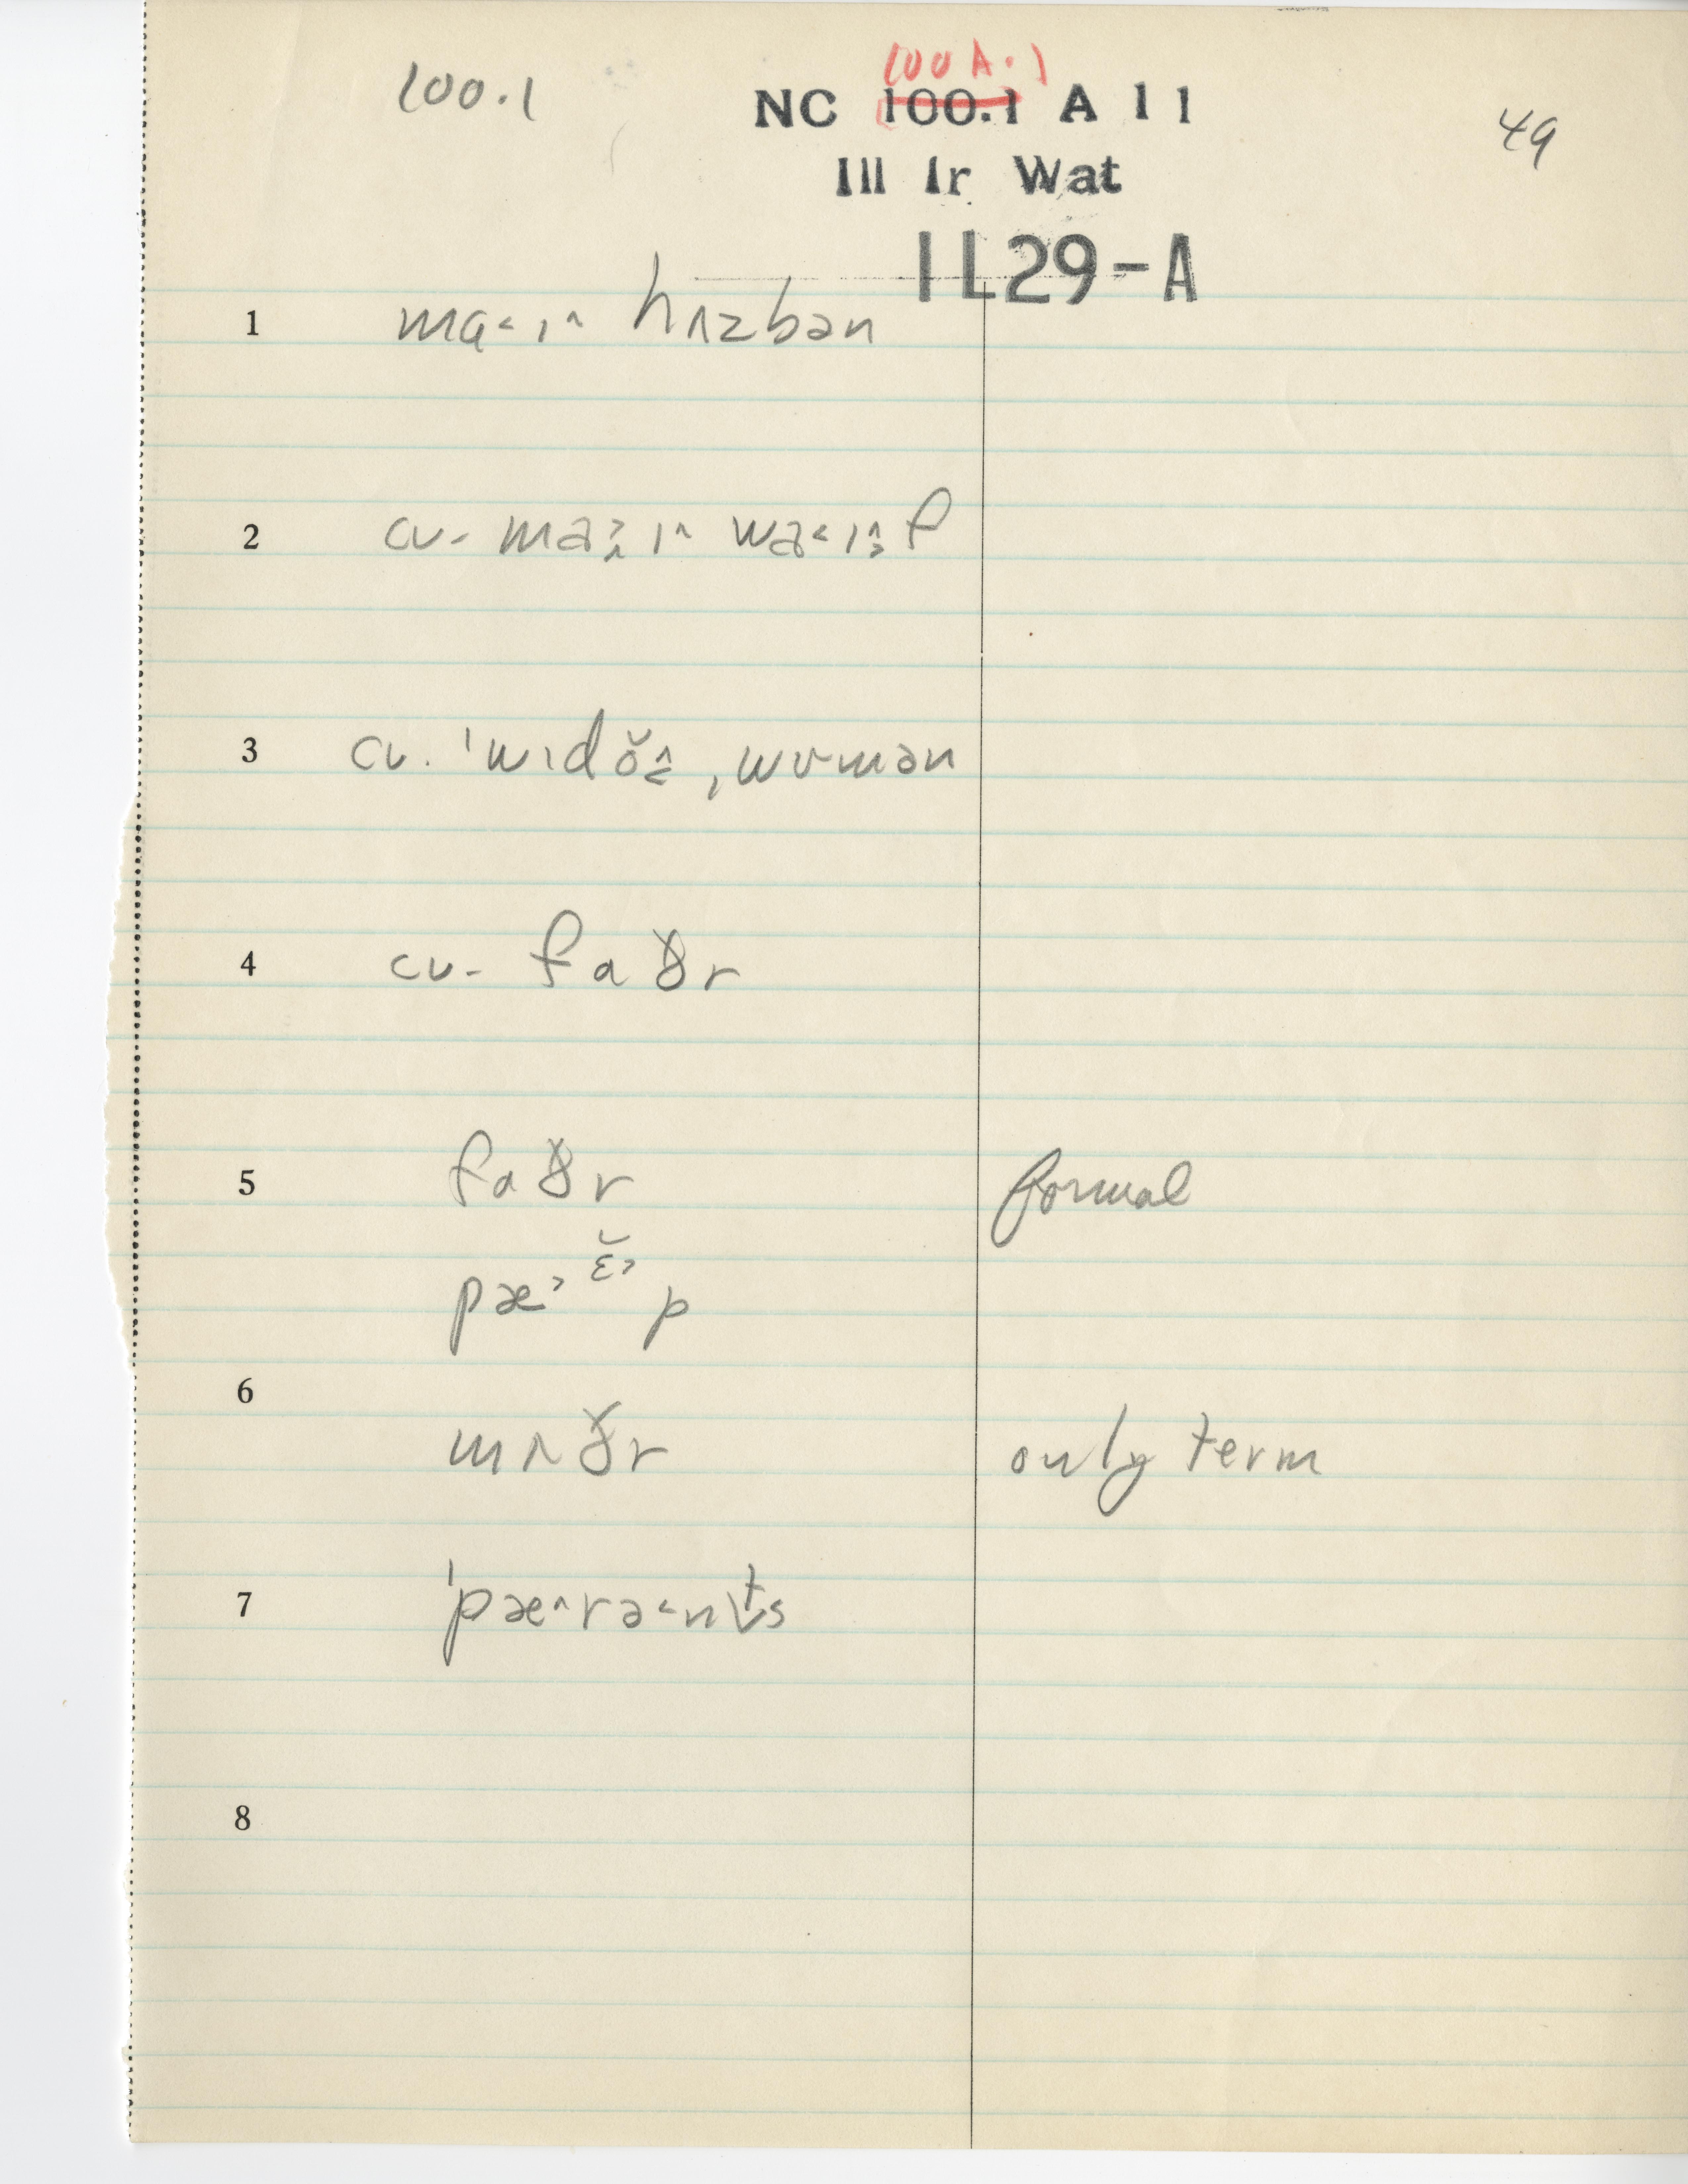 100.1
100 A.1
NC 100.1 A 1 1
49
Ill Ir Wat
1L29-A
1 mɑ˂ ɪ˄ hʌzbən
2 cv- ma˃˰ ɪ˄ wa˂ ɪ˄˒ f
3 cv. ˈwɪdŏ˄ ˌwʊmən
4 cv- faðr
5 faðr formal
pæ˃ ɛ̆˃ p
6
mʌðr only term
7 ˈpæ˄rə˂nts
8